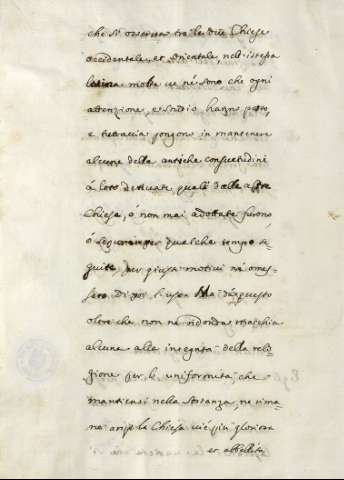 che si osservan tra le due Chiese
occidentale, et orientale, nell' istessa
latina molte ve ne sono che ogni
attenzione, e studio hanno posto,
e tuttavia pongono in mantenere
alcune delle antiche consuetudini
á loro derivate quali dalle altre
Chiese, ó non mai adottate furono
ó seguitate per qualche tempo
per giusti motivi ne omes=
sero di poi l'uso. Ma da questo
oltre che non ne ridonda macchia
alcuna alla integrità della reli=
gione per l' uniformità, che
mantiensi nella sostanza, ne rima=
ne anzi la Chiesa vie più gloriosa
et abbellita